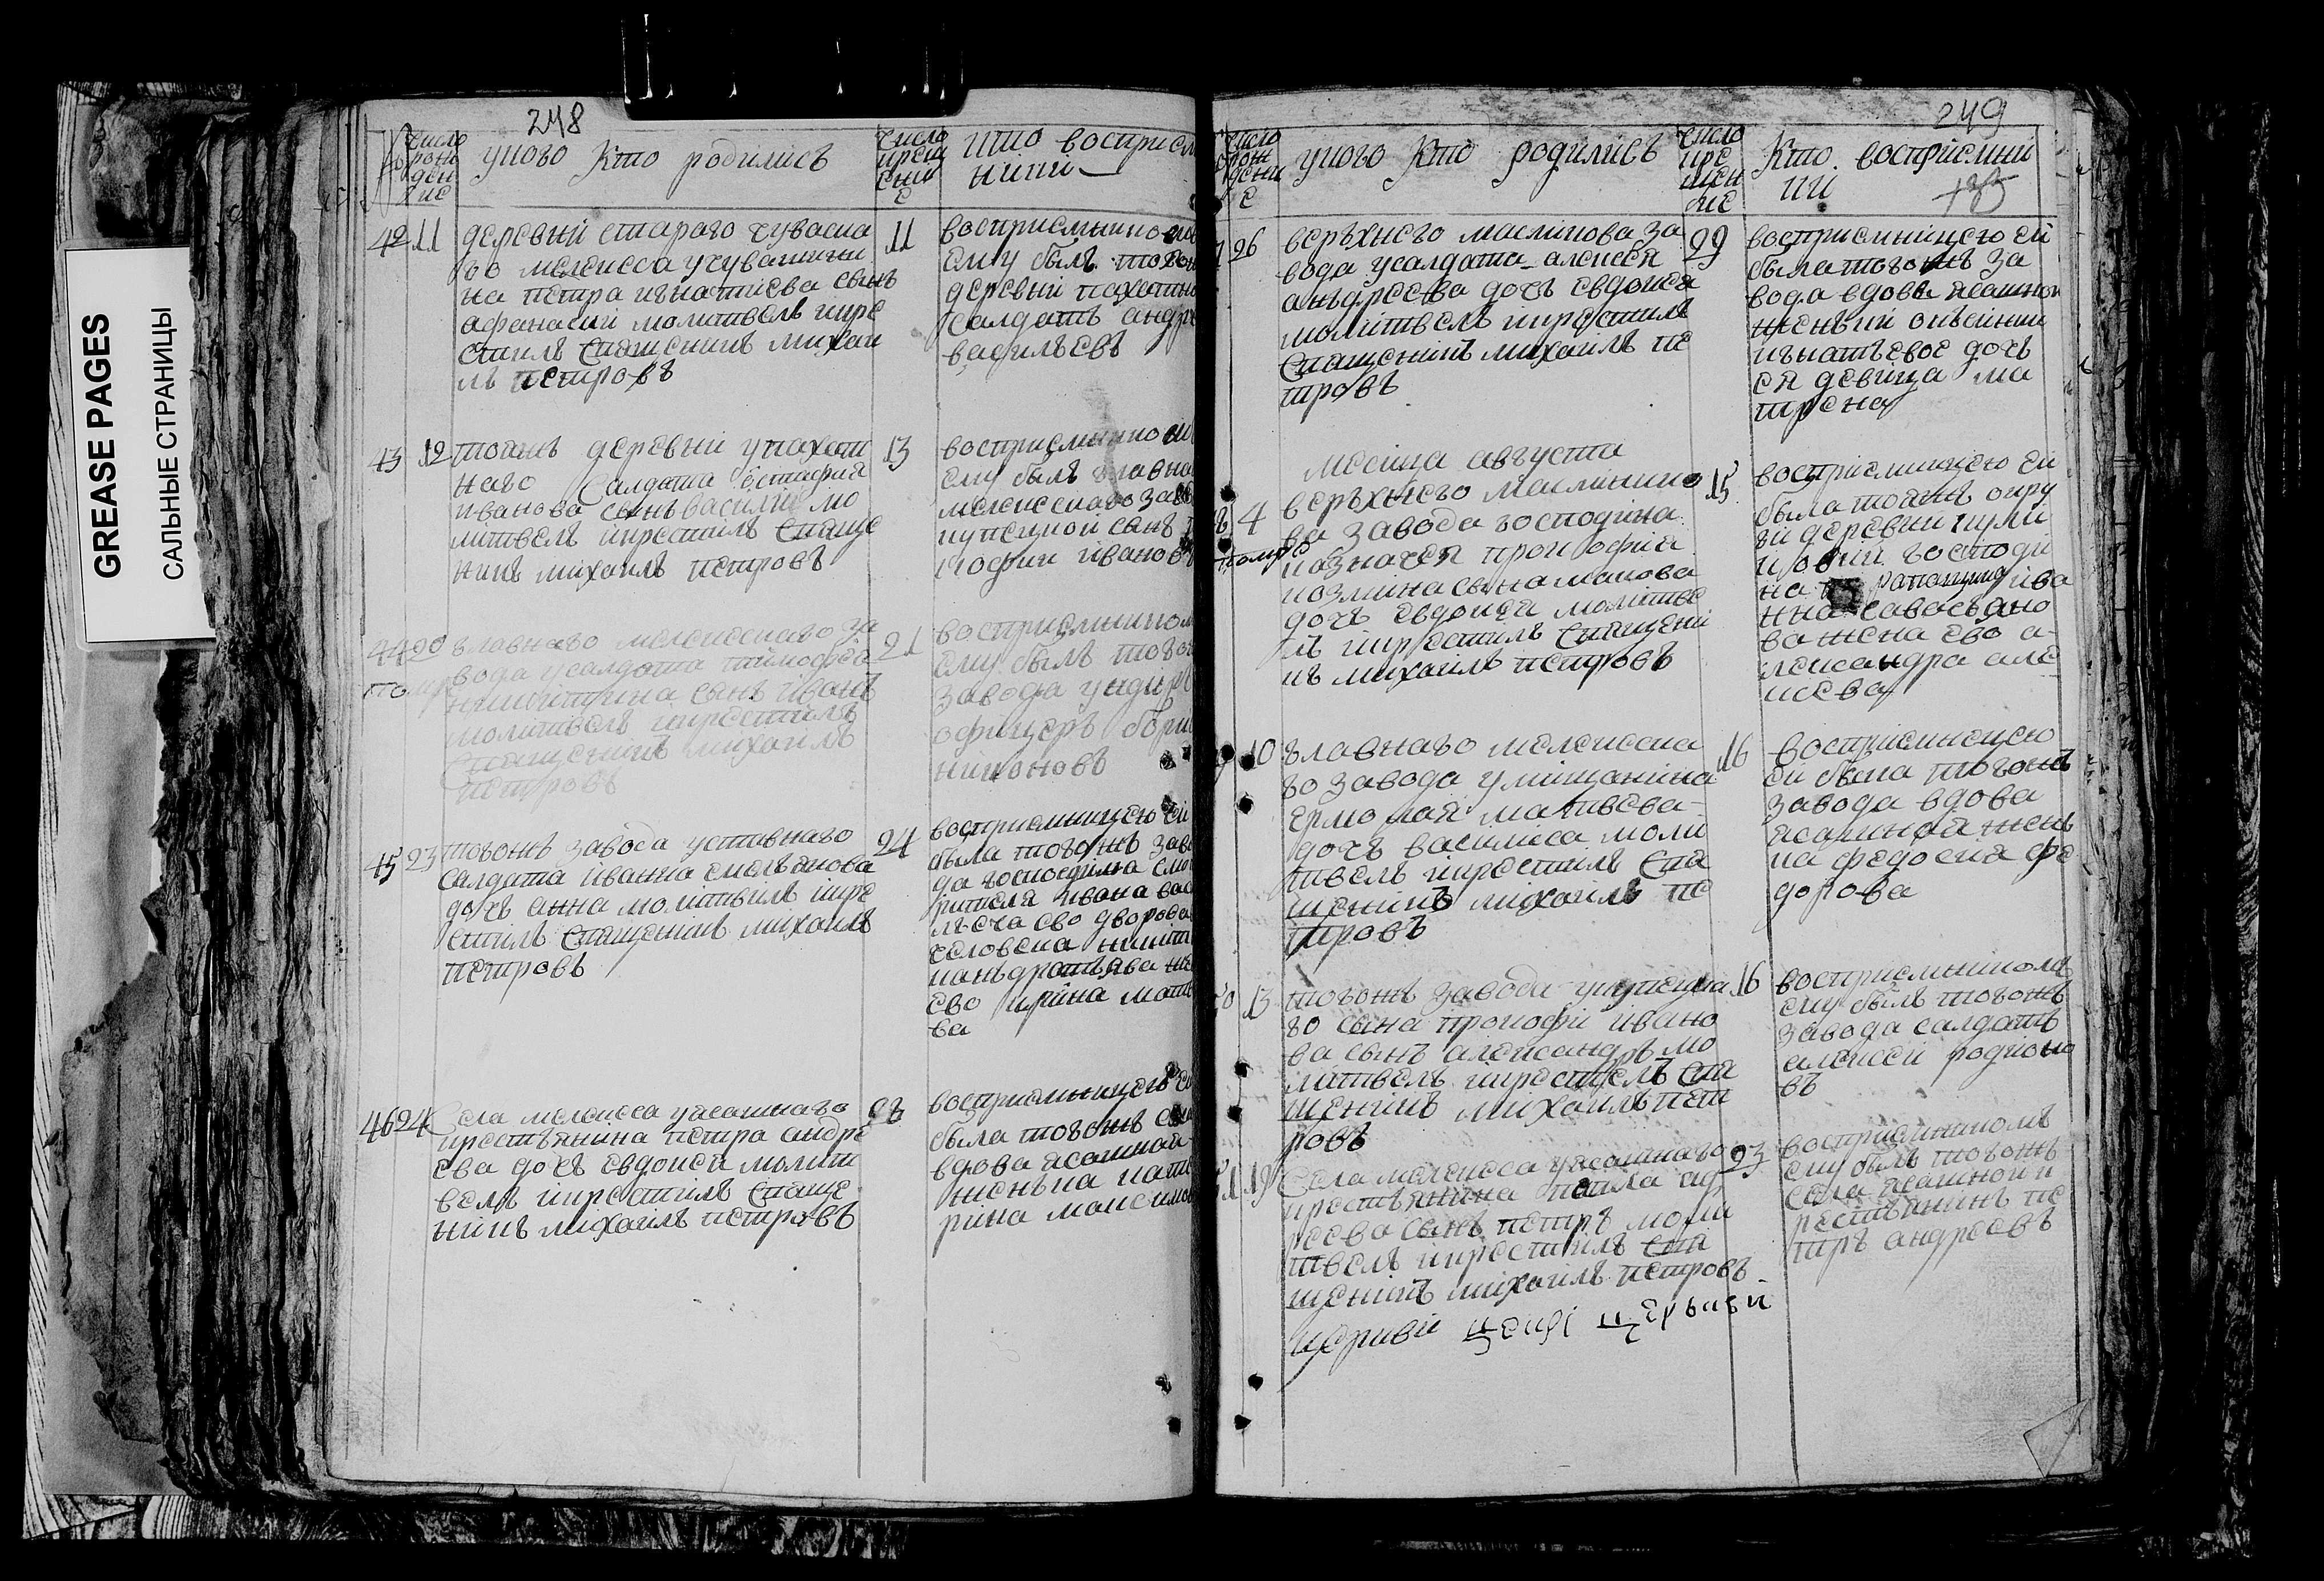 GREASE PAGES
САЛЬНЫЕ СТРАНИЦЫ
248
число рождение
укого кто родились
число крещение
кто восприемники
42 11
деревни старого чуваска
го мелекесса учувашини
на петра игнатиева сынъ
афанасий молитвелъ икре
стилъ священикъ михаи
лъ петровъ
11
восприемником
ему былъ тоеж
деревни пахатны
салдатъ андре
васильевъ
43 12
тоижъ деревни упахат
наго салдата естафия
иванова сынъ василий мо
литвелъ икрестилъ свяще
никъ михаилъ петровъ
13
восприемником
ему былъ главна
мелекескаго зав
купецкой сынъ
кофии иванов
44 20
помр
главнаго мелекескаго за
вода усалдата тимофея
никитина сынъ иванъ
молитвелъ икрестилъ
священикъ михаилъ
петровъ
21
восприемником
ему былъ того
завода ундир
офицеръ бори
никоновъ
45 23
тогожъ завода уставнаго
салдата иванна емельянова
дочь анна молитвилъ икре
стилъ священикъ михаилъ
петровъ
24
восприемницею ей
была тогожъ заво
да господина смо
рителя ивана вас
льеча ево дворова
человека никит
каньдратьява же
ево ирина мат
ва
46 24
Села мелекесса уясашнаго
крестьянина петра андре
ева дочь евдокея молит
велъ икрестилъ свяще
никъ михаилъ петровъ
восприемницею ей
была тогожъ сел
вдова ясашная
женька кате
рина максимов
249
число рождение
укого кто родились
число крещение
кто восприемни
ки
183
26
верьхнего маслинова за
вода усалдата алексея
аньдреева дочь евдокея
молитвелъ икрестилъ
священикъ михаилъ пе
тровъ
29
восприемницею ей
была тогожъ за
вода вдове ясашной
женьки
игнатьевое дочь
ея девица ма
трена
месяца августа
4
помре
верьхнего маслинико
ва завода господина
казначея прокофия
козмина сына
дочь евдокея молитве
лъ икрестилъ священи
къ михаилъ петровъ
15
восприемницею ей
была тоижъ окру
ги деревни
господи
на ива
нна савастьяно
ва жена ево а
лександра але
ксева
10
главнаго мелекеска
го завода умищанина
ермолая матвева
дочь василиса моли
твелъ икрестилъ свя
щеникъ михаилъ пе
тровъ
16
восприемницею
ей была тогожъ
завода вдова
ясашная жень
ка федосия фе
дорова
13
тогожъ завода укупецка
го сына прокофи ивано
ва сынъ александръ мо
литвелъ икрестилъ свя
щеникъ михаилъ пет
ровъ
16
восприемникомъ
ему былъ тогожъ
завода салдатъ
алексеи родионо
въ
51 19
Села мелекесса уясашнаго
крестьянина
реева сынъ петръ моли
твелъ икрестилъ свя
щеникъ михаилъ петровъ
23
восприемникомъ
ему былъ тогожъ
села ясашной к
рестьянинъ пе
тръ андреевъ
церкви